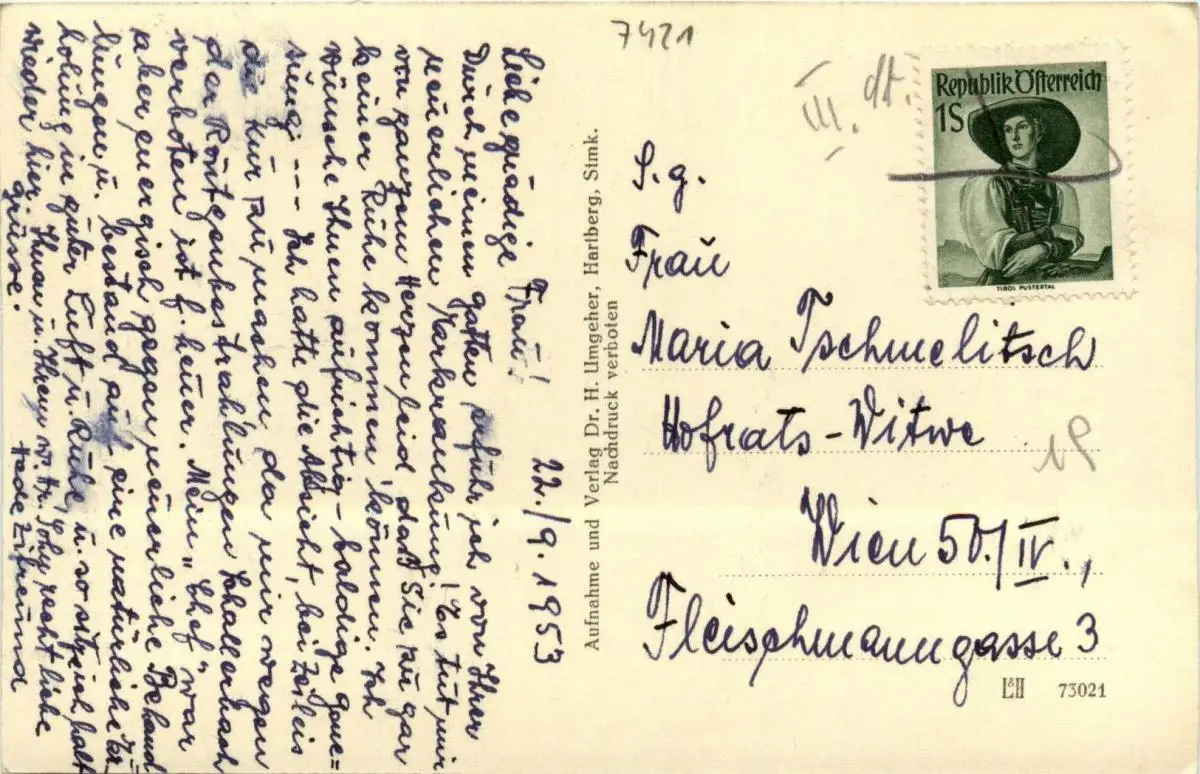 7421
III. dt.
Republik Österreich
1S
TIROL PUSTERTAL
S.g.
Frau
Maria Tschmelitsch
Hofrats-Witwe
Wien 50./IV.,
Fleischmanngasse 3
L&H 73021
Aufnahme und Verlag Dr. H. Umgeher, Hartberg, Stmk.
Nachdruck verboten
22./9.1953
Liebe gnädige Frau!
Durch meinen Gatten erfuhr ich von Ihrer
neuerlichen Erkrankung! Es tut mir
von ganzem Herzen leid daß Sie zu gar
keiner Ruhe kommen können. Ich
wünsche Ihnen aufrichtig – baldige Gene=
sung; --- Ich hatte die Absicht, bei Zeileis
die Kur zu machen da mir wegen
der Röntgenbestrahlungen Schallerbach
verboten ist f. heuer. Mein „Chef" war
aber energisch gegen neuerliche Behand
lungen u. bestand auf eine natürliche Er
holung in guter Luft u. Ruhe, u. so
wieder hier. Ihnen u. Ihrem w. Hr. recht liebe
Grüsse.